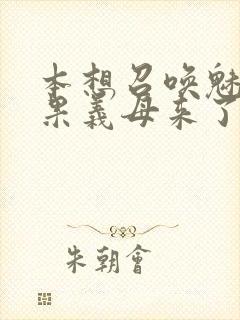 本想召唤魅
果義母来了
朱朝會